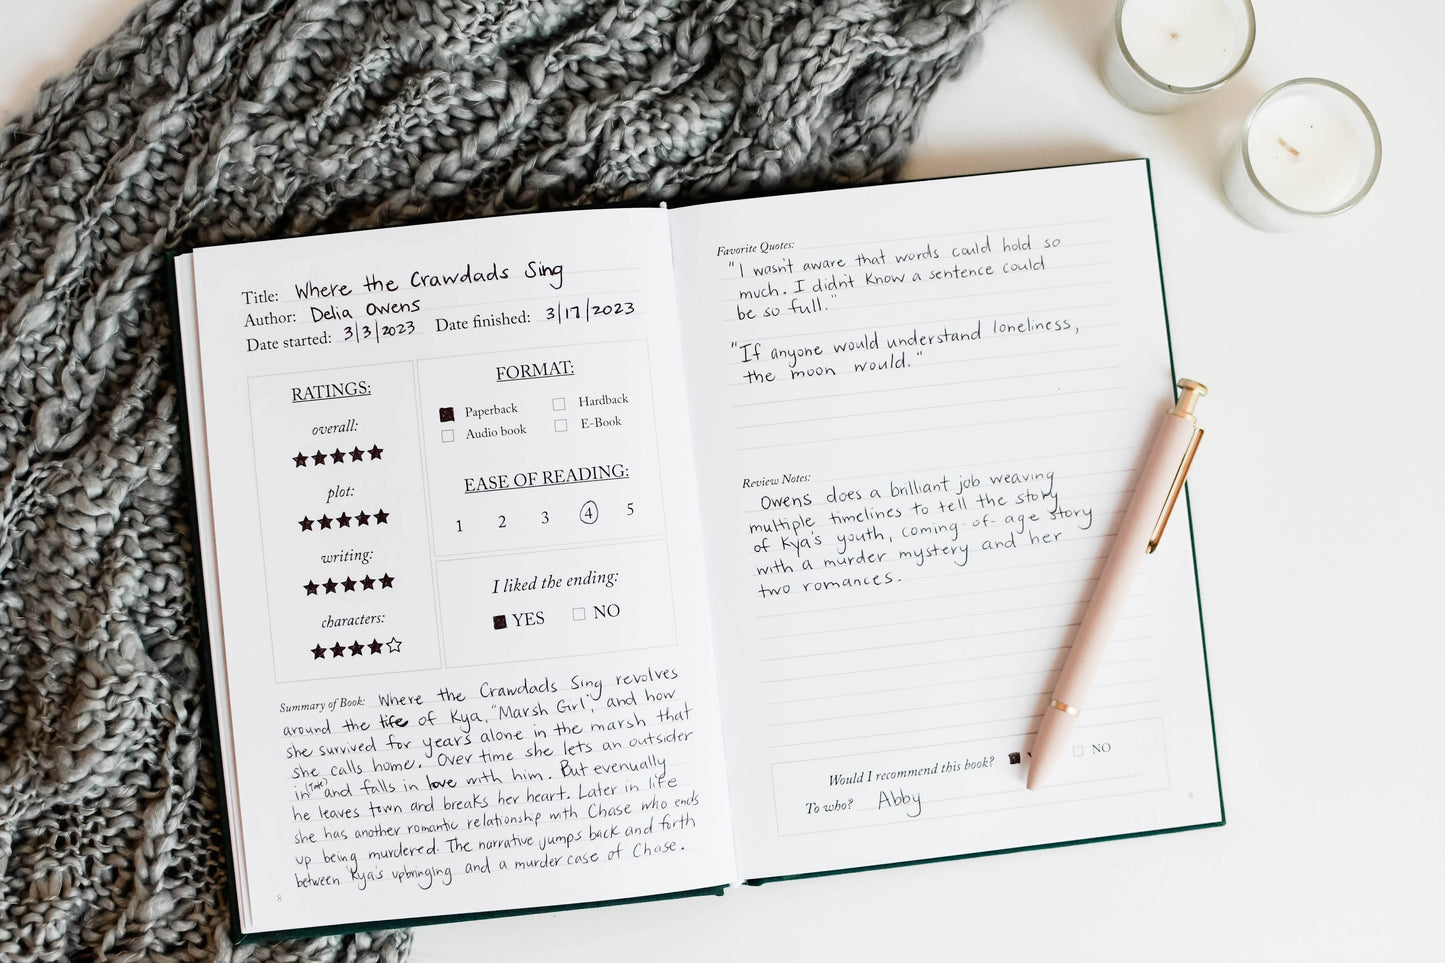 Title: Where the Crawdads Sing
Author: Delia Owens
Date started: 3|3|2023 Date finished: 3|17|2023
RATINGS:
overall:
★★★★★
plot:
★★★★★
writing:
★★★★★
characters:
★★★★☆
FORMAT:
Paperback Hardback
Audio book E-Book
EASE OF READING:
1 2 3 4 5
I liked the ending:
YES NO
Summary of Book: Where the Crawdads Sing revolves
around the life of Kya, "Marsh Girl", and how
she survived for years alone in the marsh that
she calls home. Over time she lets an outsider
in, Tate, and falls in love with him. But evenually
he leaves town and breaks her heart. Later in life
she has another romantic relationship with Chase who ends
up being murdered. The narrative jumps back and forth
between Kya's upbringing and a murder case of Chase.
8
Favorite Quotes:
"I wasn't aware that words could hold so
much. I didn't know a sentence could
be so full."
"If anyone would understand loneliness,
the moon would."
Review Notes:
Owens does a brilliant job weaving
multiple timelines to tell the story
of Kya's youth, coming-of-age story
with a murder mystery and her
two romances.
Would I recommend this book? NO
To who? Abby
9